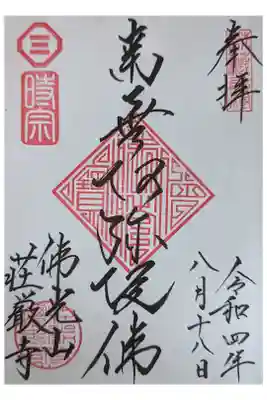 奉拝
南無阿弥陀佛
時宗
佛光山
荘厳寺
令和四年
八月十八日